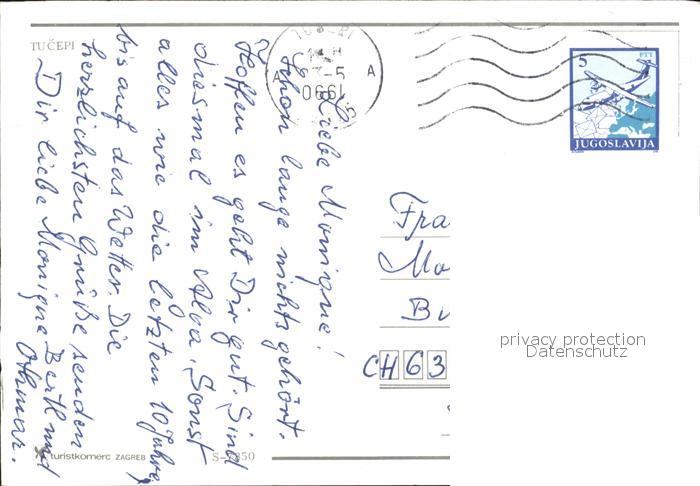 TUČEPI
Liebe Monique!
Schon lange nichts gehört.
Hoffen es geht Dir gut. Sind
diesmal im Alga. Sonst
alles wie die letzten 10 Jahre,
bis auf das Wetter. Die
herzlichsten Grüße senden
Dir liebe Monique Bertl und
Othmar.
PTT
5
JUGOSLAVIJA
Fra
Mo
CH 63
privacy protection
Datenschutz
turistkomerc ZAGREB